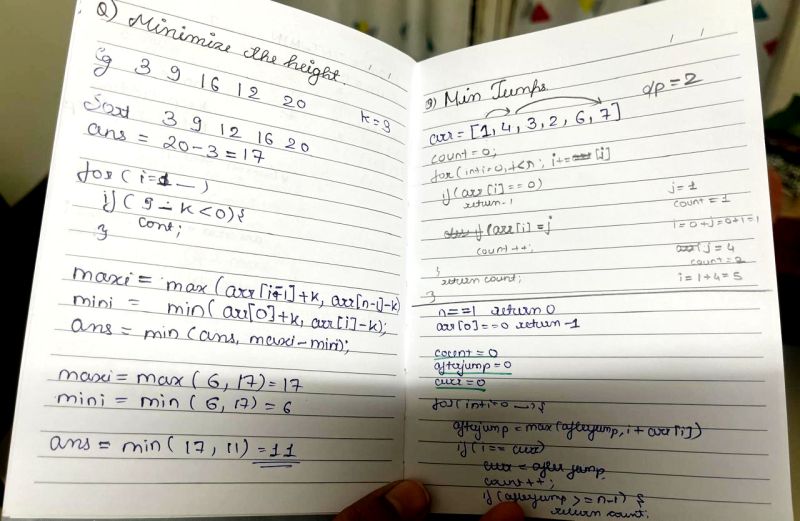 Q) Minimize the height
Eg 3 9 16 12 20
k=3
Sort 3 9 12 16 20
ans = 20-3=17
for(i=1 —)
if(9-k<0){
cont;
}
maxi = max(arr[i-1]+k, arr[n-1]-k)
mini = min(arr[0]+k, arr[i]-k);
ans = min(ans, maxi-mini);
maxi=max(6,17)=17
mini = min(6,17)=6
ans = min(17,11)=11
Q) Min Jumps
o/p=2
arr=[1,4,3,2,6,7]
count=0;
for(int i=0,i<n; i+= [j]
if(arr[i]==0)
return-1
if(arr[i]=j
count++;
}
return count;
}
j=1
count=1
i=0+j=0+1=1
j=4
count=2
i=1+4=5
n==1 return 0
arr[0]==0 return -1
count=0
afterjump=0
curr=0
for(int i=0 —){
afterjump=max(afterjump,i+arr[i])
if(i==curr)
curr=afterjump
count++;
if(afterjump>=n-1) {
return count;